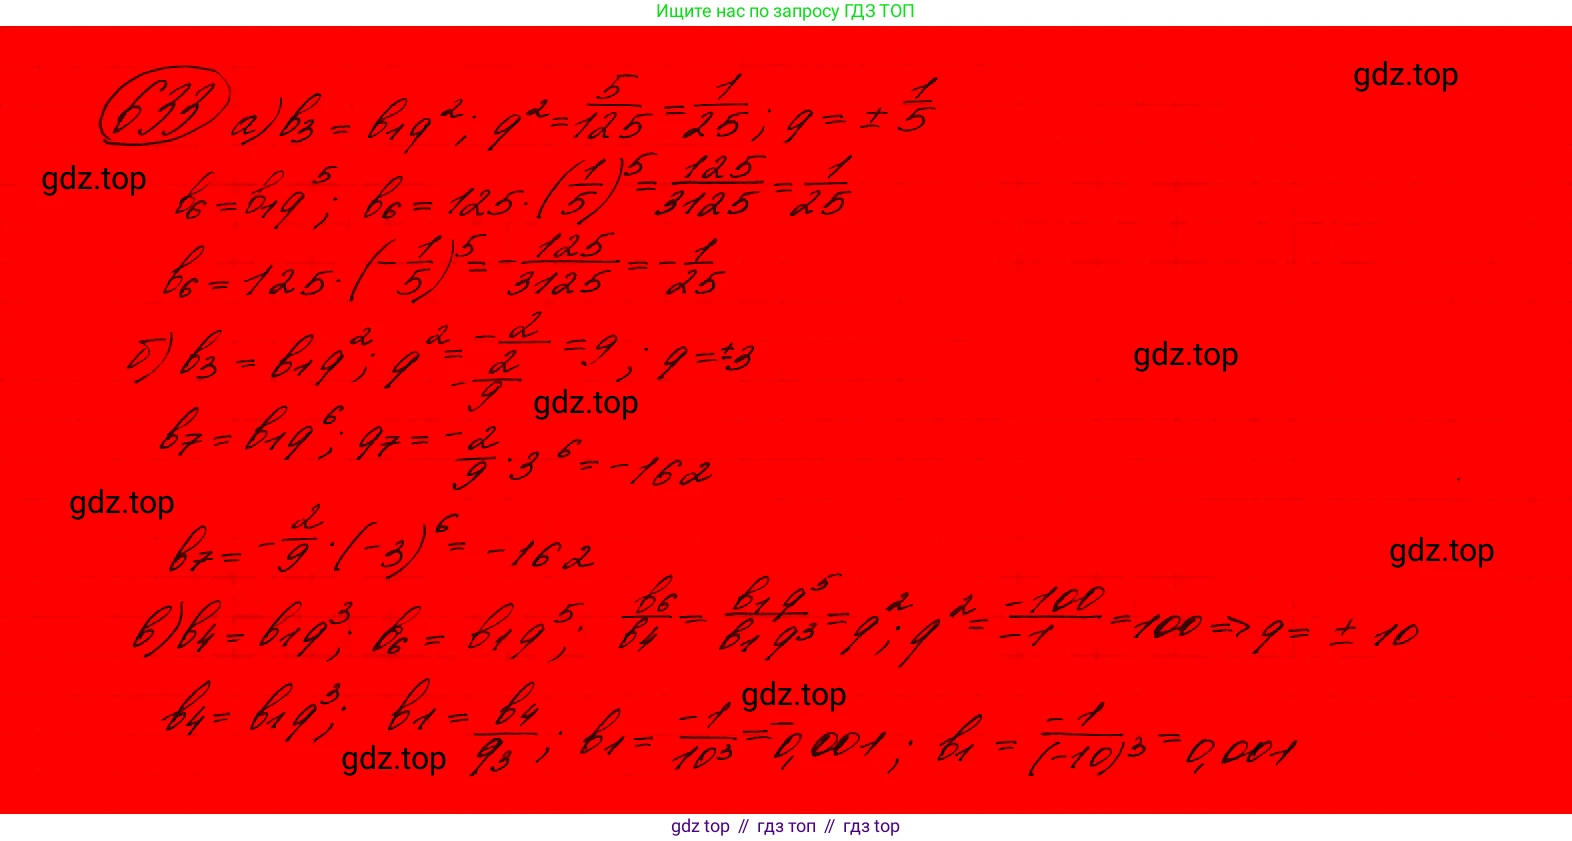 Ищите нас по запросу ГДЗ ТОП
gdz.top
633 а) b₃ = b₁q²; q² = 5/125 = 1/25; q = ± 1/5
gdz.top
b₆ = b₁q⁵; b₆ = 125 · (1/5)⁵ = 125/3125 = 1/25
b₆ = 125 · (-1/5)⁵ = - 125/3125 = - 1/25
б) b₃ = b₁q²; q² = -2/(-2/9) = 9; q = ±3
gdz.top
gdz.top
b₇ = b₁q⁶; q₇ = -2/9 · 3⁶ = -162
gdz.top
b₇ = -2/9 · (-3)⁶ = -162
gdz.top
в) b₄ = b₁q³; b₆ = b₁q⁵; b₆/b₄ = b₁q⁵/b₁q³ = q²; q² = -100/-1 = 100 => q = ± 10
gdz.top
b₄ = b₁q³; b₁ = b₄/q₃; b₁ = -1/10³ = -0,001; b₁ = -1/(-10)³ = 0,001
gdz.top
gdz top // гдз топ // гдз top